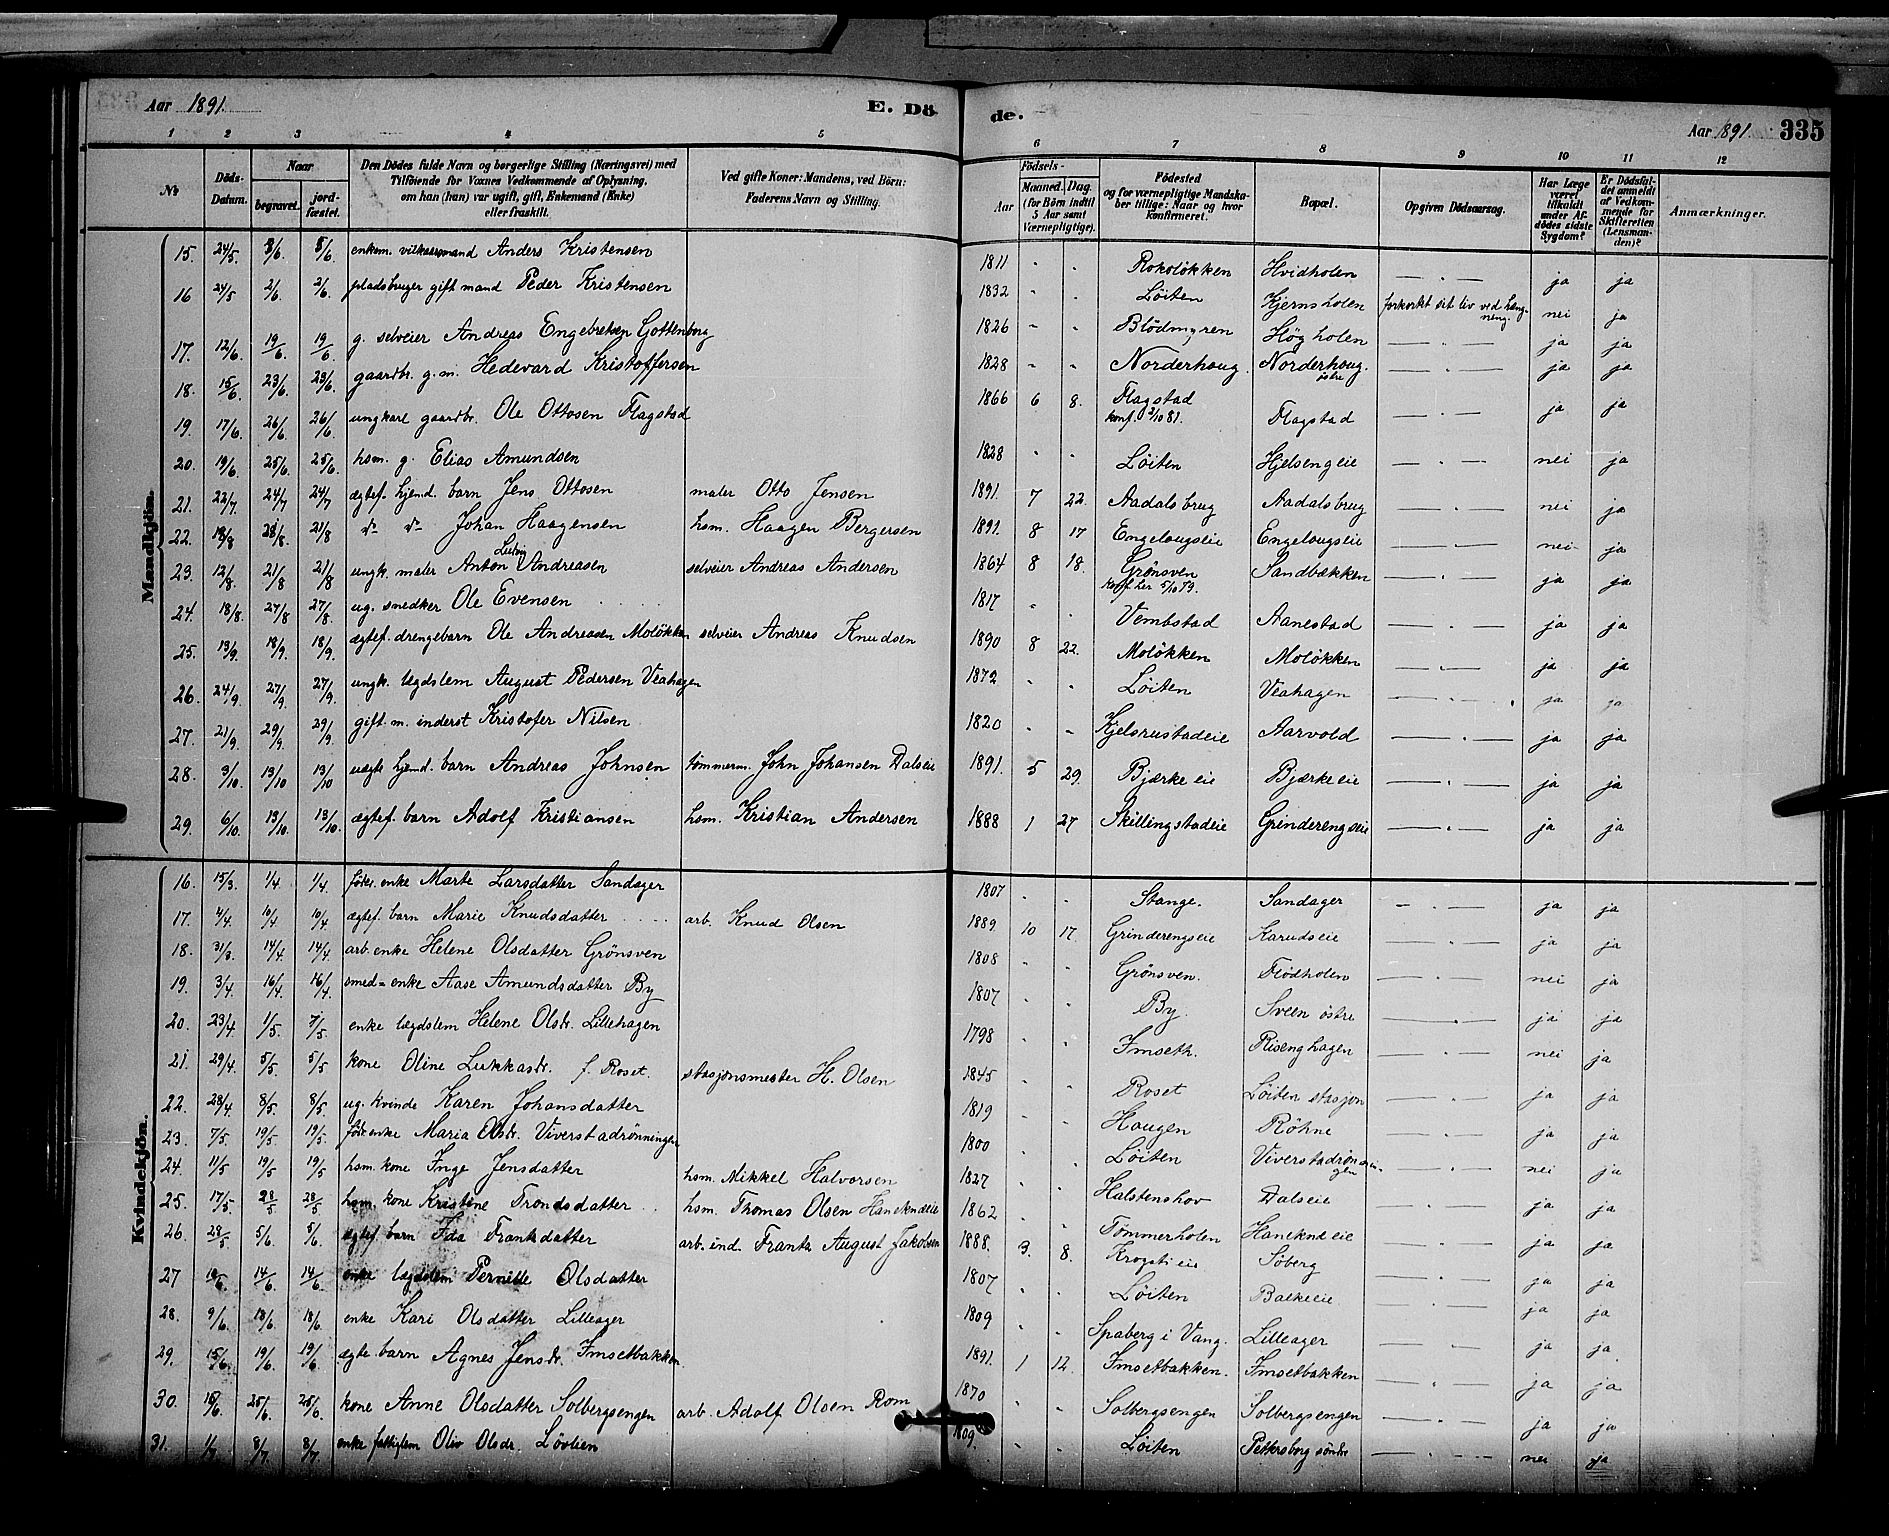 Aar 1891. E. Dö-
de. Aar 1891. 335
1 2 3 4 5 6 7 8 9 10 11 12
No
Döds-Datum.
Naar
begravet.
jord-fæstet.
Den Dödes fulde Navn og borgerlige Stilling (Næringsvei) med
Tilföiende for Voxnes Vedkommende af Oplysning,
om han (hun) var ugift, gift, Enkemand (Enke)
eller fraskilt.
Ved gifte Koner: Mandens, ved Börn:
Faderens Navn og Stilling.
Födsels-
Aar
Maaned. Dag.
(for Börn indtil
5 Aar samt
Værnepligtige).
Födested
og for værnepligtige Mandska-
ber tillige: Naar og hvor
konfirmeret.
Bopæl.
Opgiven Dödsaarsag.
Har Læge
været
tilkaldt
under Af-
dödes sidste
Sygdom?
Er Dödsfal-
det anmeldt
af Vedkom-
mende for
Skifteretten
(Lensman-
den)?
Anmærkninger.
Mandkjön.
15. 24/5 3/6 5/6. enkem. vilkaarsmand Anders Kristensen 1811 " " Rokoløkken Hvidholen — " — ja ja
16 24/5 2/6 2/6. pladsbruger gift mand Peder Kristensen 1832 " " Löiten Kjernsholen forkortet sit liv ved hæng-ning. nei ja
17. 12/6. 19/6 19/6 g. selveier Andreas Engebretsen Gottenborg 1826 " " Blödmyren Høgholen — " — ja ja
18. 15/6. 23/6 23/6. gaardbr. g. m. Hedevard Kristoffersen 1828 " " Norderhoug. Norderhoug. østre — " — ja ja
19. 17/6. 26/6 26/6 ungkarl gaardbr. Ole Ottosen Flagstad 1866 6 8. Flagstad konf. 2/10 81. Flagstad — " — ja ja
20. 19/6 25/6. 25/6. hsm. g. Elias Amundsen 1828 " " Löiten Hjelsengeie — " — nei ja
21. 22/7. 24/7 24/7 ægtef. hjemd. barn Jens Ottosen maler Otto Jensen 1891. 7 22. Aadalsbrug Aadalsbrug — " — nei ja
22. 18/8 21/8. 21/8 do do Johan Haagensen hsm. Haagen Bergersen 1891. 8 17 Engelaugseie Engelaugseie — " — nei ja
23. 12/8. 21/8 21/8 ungk. maler Anton Ludvig Andreasen selveier Andreas Andersen 1864 8 18. Grönsven Konf. her 5/10 79. Sandbækken — " — ja ja
24. 18/8. 27/8 27/8. ug. snedker Ole Evensen 1817 " " Vembstad Aanestad — " — ja ja
25. 13/9. 18/9. 18/9. ægtef. drengebarn Ole Andreasen Moløkken selveier Andreas Knudsen 1890 8 22. Moløkken Moløkken — " — ja ja
26. 24/9. 27/9. 27/9 ungk. lægdslem August Pedersen Veahagen 1872 " " Löiten Veahagen — " — ja ja
27. 21/9. 29/9. 29/9. gift. m. inderst Kristofer Nilsen 1820 " " Kjelsrustadeie Aarvold — " — ja ja
28. 3/10. 13/10 13/10 uægte hjemd. barn Andreas Johnsen tømmerm. John Johansen Dalseie 1891. 5 29. Bjærkeeie Bjærkeeie — " — ja ja
29. 6/10. 13/10. 13/10. ægtef. barn Adolf Kristiansen hsm. Kristian Andersen 1888 1 27 Skillingstadeie Grinderengseie — " — ja ja
Kvindekjön.
16. 15/3. 1/4 1/4. føder. enke Marte Larsdatter Sandager 1807 " " Stange. Sandager — " — ja ja
17. 4/4. 10/4 10/4 ægtef. barn Marie Knudsdatter arb. Knud Olsen 1889. 10 17. Grinderengseie Karudseie — " — ja ja
18. 31/3. 14/4 14/4 arb. enke Helene Olsdatter Grönsven 1808 " " Grönsven. Flödholen — " — nei ja
19. 3/4. 16/4. 16/4. smed= enke Aase Amundsdatter By 1807 " " By. Sveen østre — " — ja ja
20. 23/4 1/5 7/5. enke lægdslem Helene Olsdr. Lillehagen 1798 " " Imseth. Risenghagen — " — nei ja
21 29/4. 5/5 5/5 kone Oline Lukkasdr. f. Roset. stasjonsmester H. Olsen 1845 " " Roset Löiten stasjon — " — ja ja
22. 28/4. 8/5. 8/5 ug. kvinde Karen Johansdatter 1819 " " Haugen Röhne — " — ja ja
23. 7/5 19/5. 19/5. føder. enke Maria Olsdr. Viverstadrönningen 1800 " " Löiten Viverstadrönnin-gen — " — nei ja
24. 11/5 19/5 19/5 hsm. kone Inge Jensdatter hsm. Mikkel Halvorsen 1827 " " Halstenshov Dalseie — " — ja ja
25. 17/5. 28/5 28/5 hsm. kone Kristine Trondsdatter hsm. Thomas Olsen Hanekneeie 1862 " " Tömmerholen Hanekneeie — " — ja ja
26. 28/5 5/6 5/6. ægtef. barn Ida Frantsdatter arb. ind. Frants August Jakobsen 1888. 3. 8. Krogsti eie Söberg — " — ja ja
27 10/6. 14/6 14/6 enke lægdslem Pernille Olsdatter 1807 " " Löiten Balkeeie — " — ja ja
28. 9/6. 18/6. 18/6. enke Kari Olsdatter Lilleager 1809 " " Spaberg i Vang. Lilleager — " — ja ja
29. 15/6. 19/6. 19/6 ægte. barn Agnes Jensdr. Imsetbakken 1891. 1 12. Imsetbakken. Imsetbakken — " — ja ja
30. 18/6. 25/6. 25/6. kone Anne Olsdatter Solbergsengen arb. Adolf Olsen Rom 1870 " " Solbergsengen Solbergsengen — " — ja ja
31. 1/7. 8/7. 8/7 enke fattiglem Oliv Olsdr. Lövlien 1809. " " Löiten Pettersborg söndre — " — nei ja